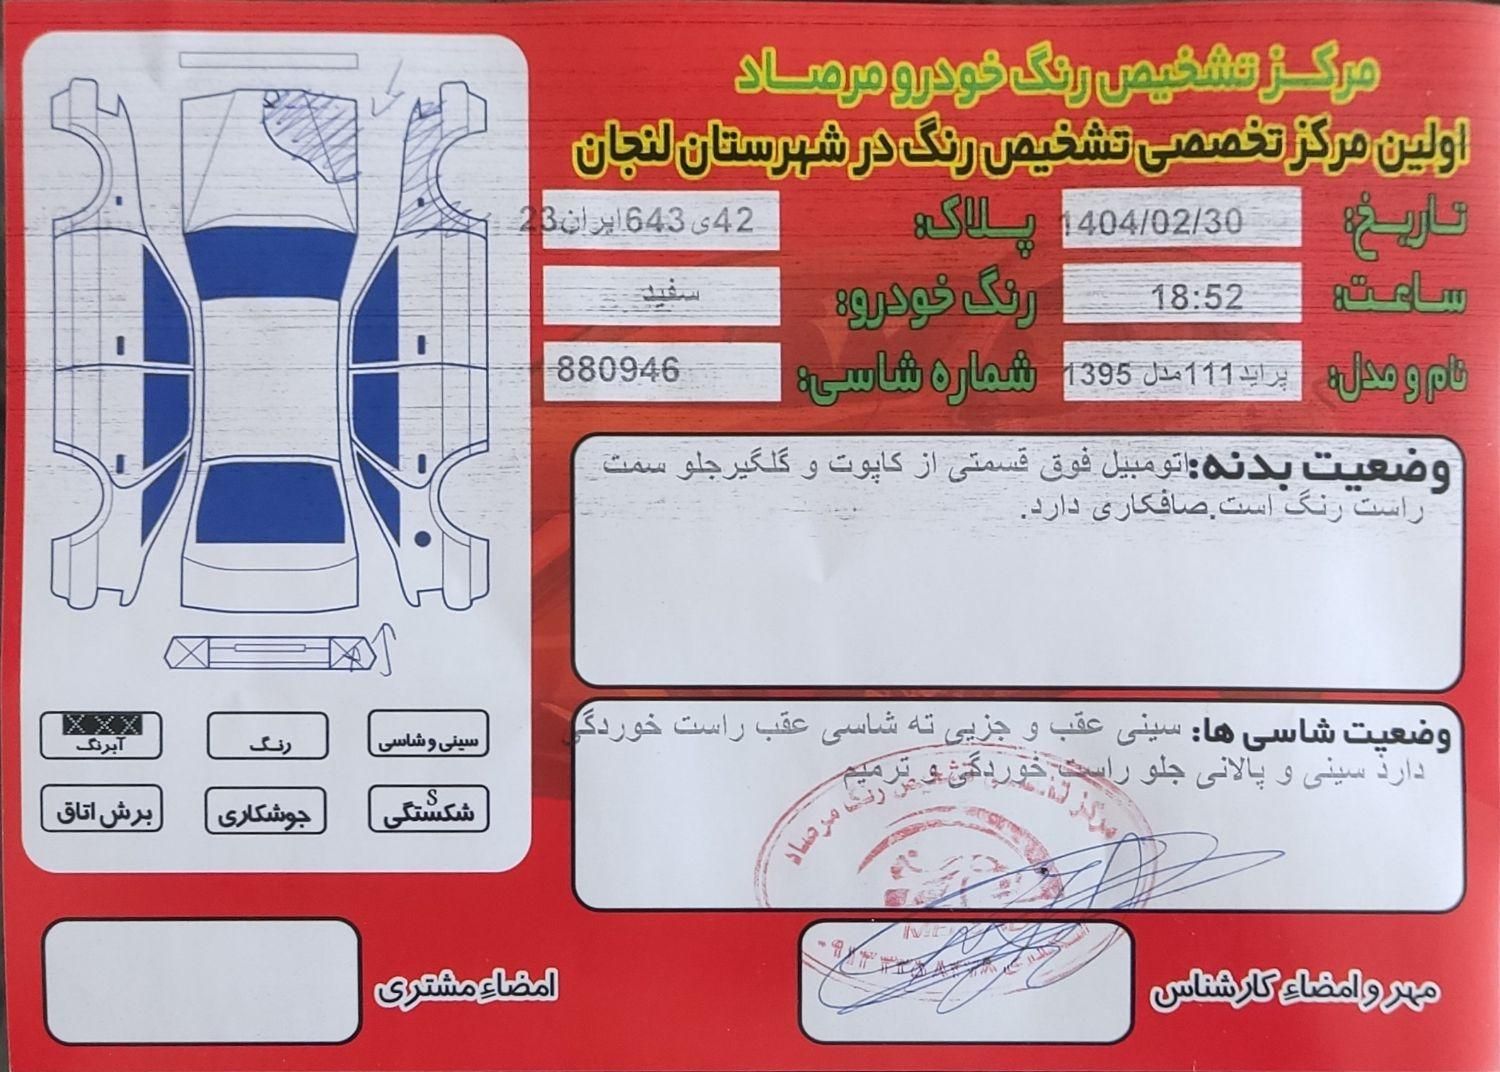 مرکز تشخیص رنگ خودرو مرصاد
اولین مرکز تخصصی تشخیص رنگ در شهرستان لنجان
تاریخ: 1404/02/30
پلاک: 42ی643ایران23
ساعت: 18:52
رنگ خودرو: سفید
نام و مدل: پراید111مدل 1395
شماره شاسی: 880946
وضعیت بدنه: اتومبیل فوق قسمتی از کاپوت و گلگیرجلو سمت
راست رنگ است.صافکاری دارد.
وضعیت شاسی ها: سینی عقب و جزیی ته شاسی عقب راست خوردگی
دارد سینی و پالانی جلو راست خوردگی و ترمیم
سینی و شاسی
رنگ
آبرنگ
شکستگی
S
جوشکاری
برش اتاق
مرکز تخصصی تشخیص رنگ مرصاد
مهر و امضاء کارشناس
امضاء مشتری